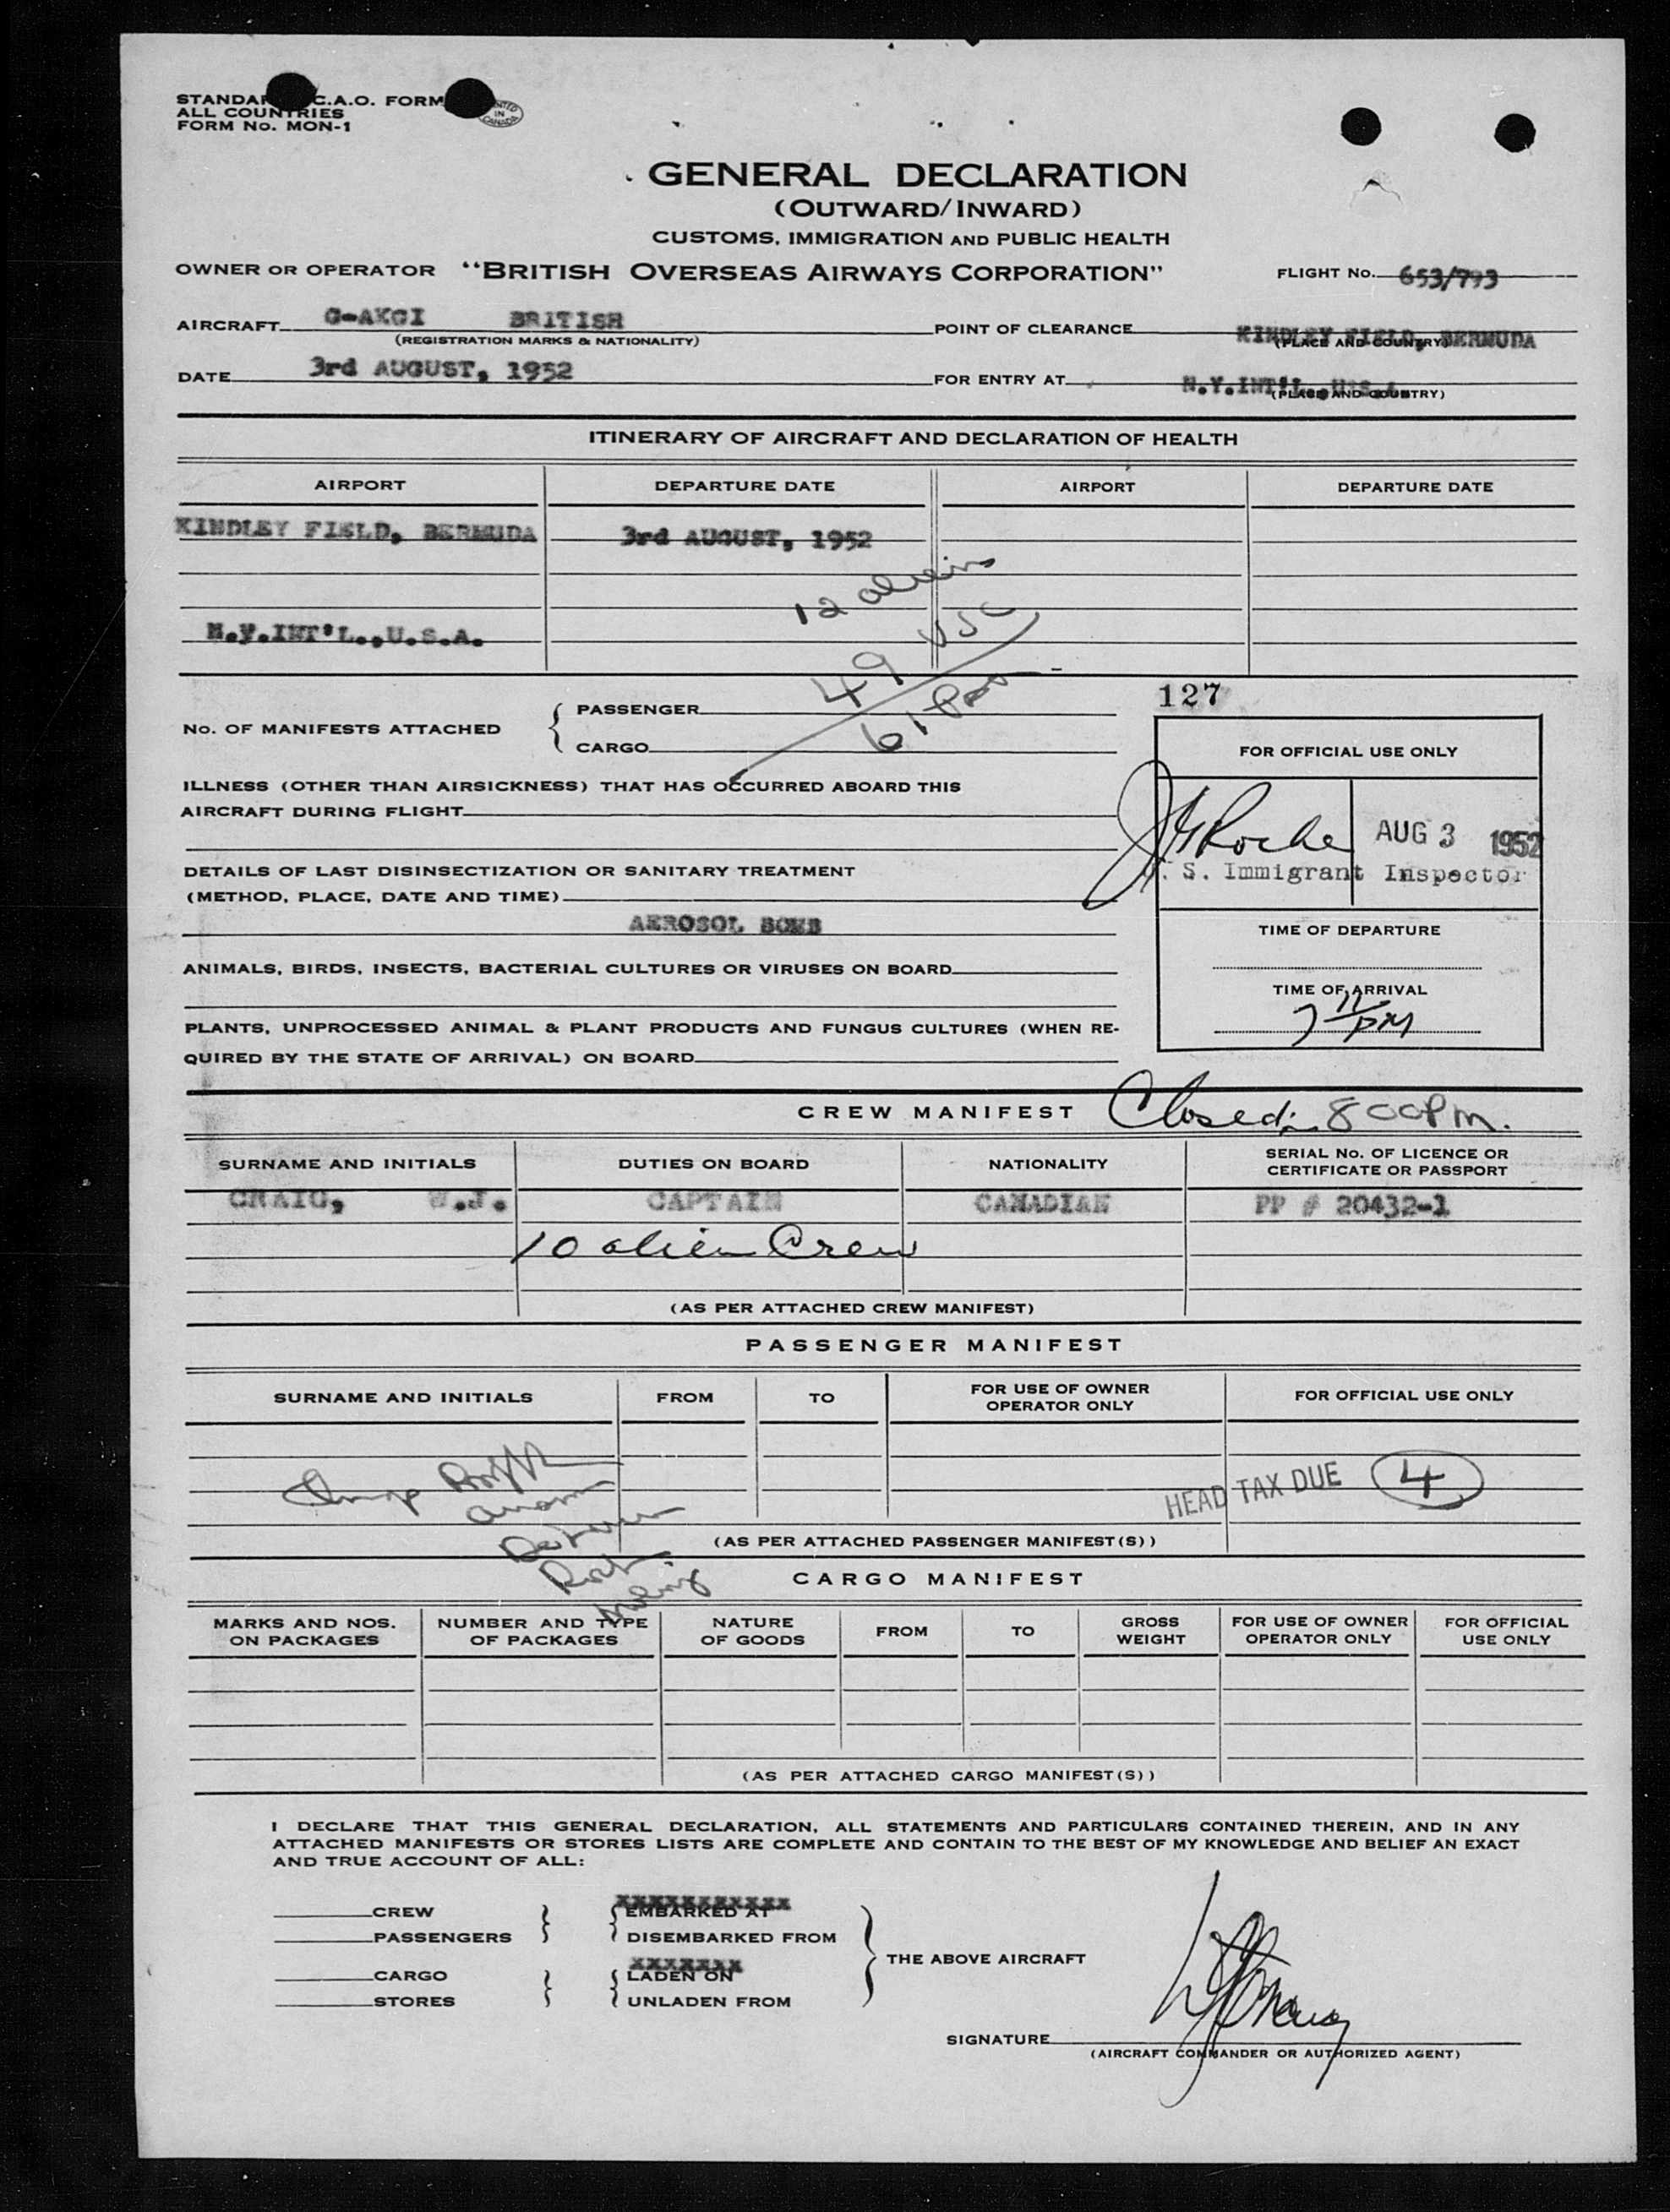 STANDA C.A.O. FORM
ALL COUNTRIES
FORM No. MON-1
IN
CANADA
GENERAL DECLARATION
(OUTWARD/INWARD)
CUSTOMS, IMMIGRATION AND PUBLIC HEALTH
OWNER OR OPERATOR "BRITISH OVERSEAS AIRWAYS CORPORATION" FLIGHT No. 653/793
AIRCRAFT G-AKGI BRITISH POINT OF CLEARANCE KINDLEY FIELD, BERMUDA
(REGISTRATION MARKS & NATIONALITY) (PLACE AND COUNTRY)
DATE 3rd AUGUST, 1952 FOR ENTRY AT N.Y.INT'L.,U.S.A.
(PLACE AND COUNTRY)
ITINERARY OF AIRCRAFT AND DECLARATION OF HEALTH
AIRPORT DEPARTURE DATE AIRPORT DEPARTURE DATE
KINDLEY FIELD, BERMUDA 3rd AUGUST, 1952
12 alien
N.Y.INT'L.,U.S.A.
49 USC
61 Pas
127
No. OF MANIFESTS ATTACHED { PASSENGER
CARGO
FOR OFFICIAL USE ONLY
ILLNESS (OTHER THAN AIRSICKNESS) THAT HAS OCCURRED ABOARD THIS
AIRCRAFT DURING FLIGHT
Roche AUG 3 1952
S. Immigrant Inspector
DETAILS OF LAST DISINSECTIZATION OR SANITARY TREATMENT
(METHOD, PLACE, DATE AND TIME)
AEROSOL BOMB
TIME OF DEPARTURE
ANIMALS, BIRDS, INSECTS, BACTERIAL CULTURES OR VIRUSES ON BOARD
TIME OF ARRIVAL
7 11 PM
PLANTS, UNPROCESSED ANIMAL & PLANT PRODUCTS AND FUNGUS CULTURES (WHEN RE-
QUIRED BY THE STATE OF ARRIVAL) ON BOARD
CREW MANIFEST Closed: 800 Pm.
SURNAME AND INITIALS DUTIES ON BOARD NATIONALITY SERIAL No. OF LICENCE OR
CERTIFICATE OR PASSPORT
CRAIG, W.J. CAPTAIN CANADIAN PP # 20432-1
10 alien Crew
(AS PER ATTACHED CREW MANIFEST)
PASSENGER MANIFEST
SURNAME AND INITIALS FROM TO FOR USE OF OWNER
OPERATOR ONLY FOR OFFICIAL USE ONLY
HEAD TAX DUE 4
(AS PER ATTACHED PASSENGER MANIFEST(S))
CARGO MANIFEST
MARKS AND NOS.
ON PACKAGES NUMBER AND TYPE
OF PACKAGES NATURE
OF GOODS FROM TO GROSS
WEIGHT FOR USE OF OWNER
OPERATOR ONLY FOR OFFICIAL
USE ONLY
(AS PER ATTACHED CARGO MANIFEST(S))
I DECLARE THAT THIS GENERAL DECLARATION, ALL STATEMENTS AND PARTICULARS CONTAINED THEREIN, AND IN ANY
ATTACHED MANIFESTS OR STORES LISTS ARE COMPLETE AND CONTAIN TO THE BEST OF MY KNOWLEDGE AND BELIEF AN EXACT
AND TRUE ACCOUNT OF ALL:
XXXXXXXXXXX
CREW } { EMBARKED AT
PASSENGERS DISEMBARKED FROM
XXXXXXX } THE ABOVE AIRCRAFT
CARGO } { LADEN ON
STORES UNLADEN FROM
SIGNATURE
(AIRCRAFT COMMANDER OR AUTHORIZED AGENT)